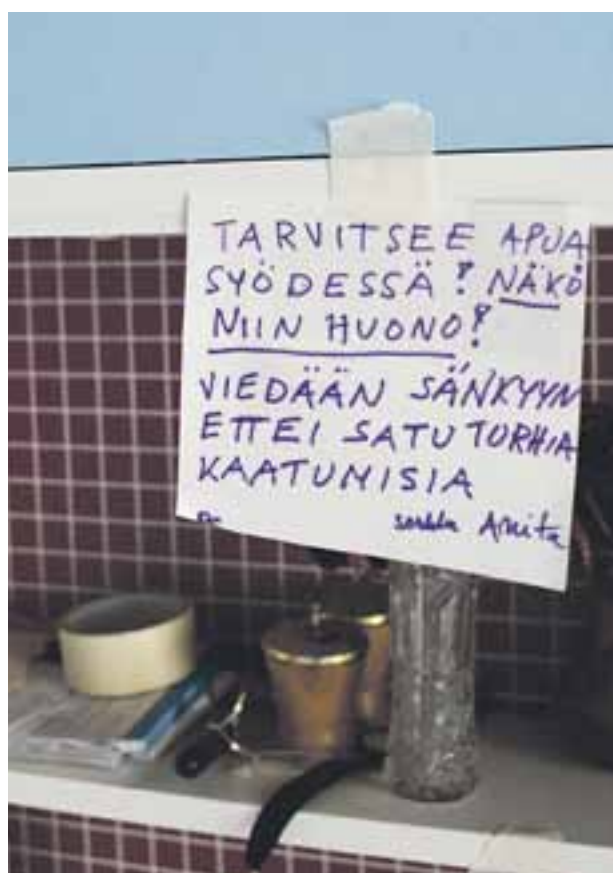 TARVITSEE APUA
SYÖDESSÄ! NÄKÖ
NIIN HUONO!
VIEDÄÄN SÄNKYYN
ETTEI SATU TURHIA
KAATUMISIA
Anita